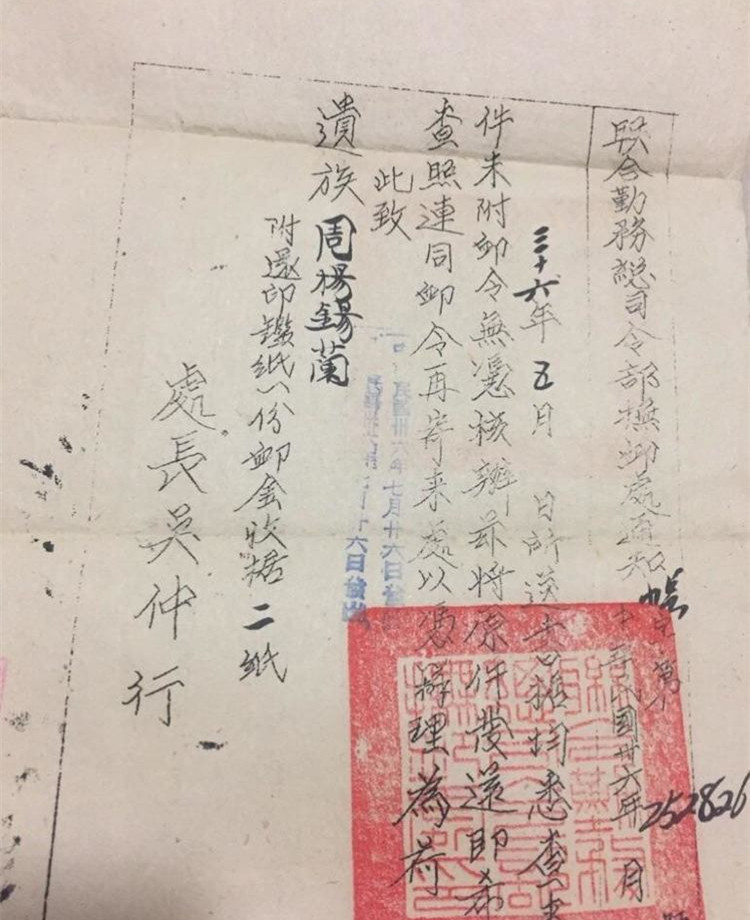 联合勤務総司令部撫卹處通知
中華民國卅六年 月
252826
三十六年五月 日所送書据均悉查來
件未附卹令無憑核辦茲將原件發還即希
查照連同卹令再寄來處以憑辦理為荷
此致
遺族周楊錫蘭
附還印鑑紙八份卹金收据二紙
處長吳仲行
民國卅六年七月廿六日發出